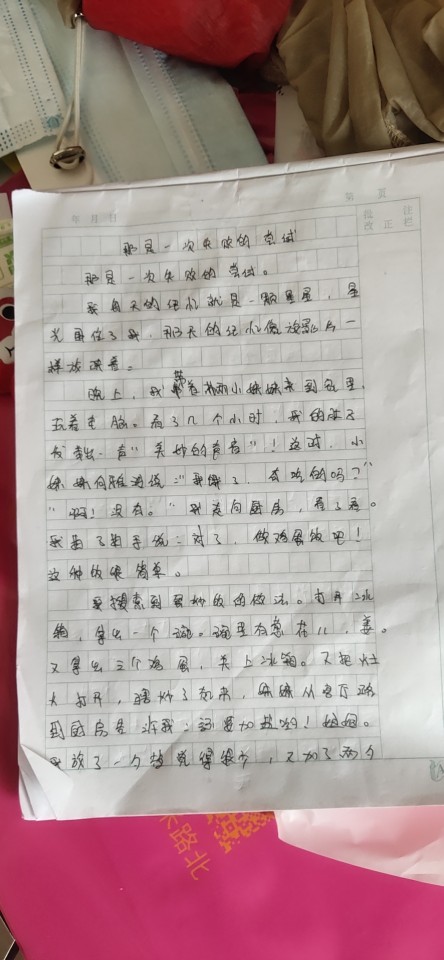 第 页
年 月 日
批 注
改 正 栏
那是一次失败的尝试
那是一次失败的尝试。
我每天的记忆就是一颗星星，星
光围住了我，那天的记忆像放影片一
样放映着。
晚上，我带着小妹妹来到家里，
玩着电脑。看了几个小时，我的肚子
发出一声“美妙的声音”！这时，小
妹妹向我说：“我饿了，有吃的吗？”
“啊！没有。”我走向厨房，看了看。
我想了想后说：对了，做鸡蛋饭吧！
这种饭很简单。
我搜索到蛋炒饭的做法。打开冰
箱，拿出一个碗。碗里有葱花儿，姜。
又拿出三个鸡蛋，关上冰箱。又把灶
火打开，就炒了起来，妹妹从客厅跑
到厨房告诉我：还要加盐哟！姐姐。
我放了一勺盐觉得很少，又加了两勺
路北